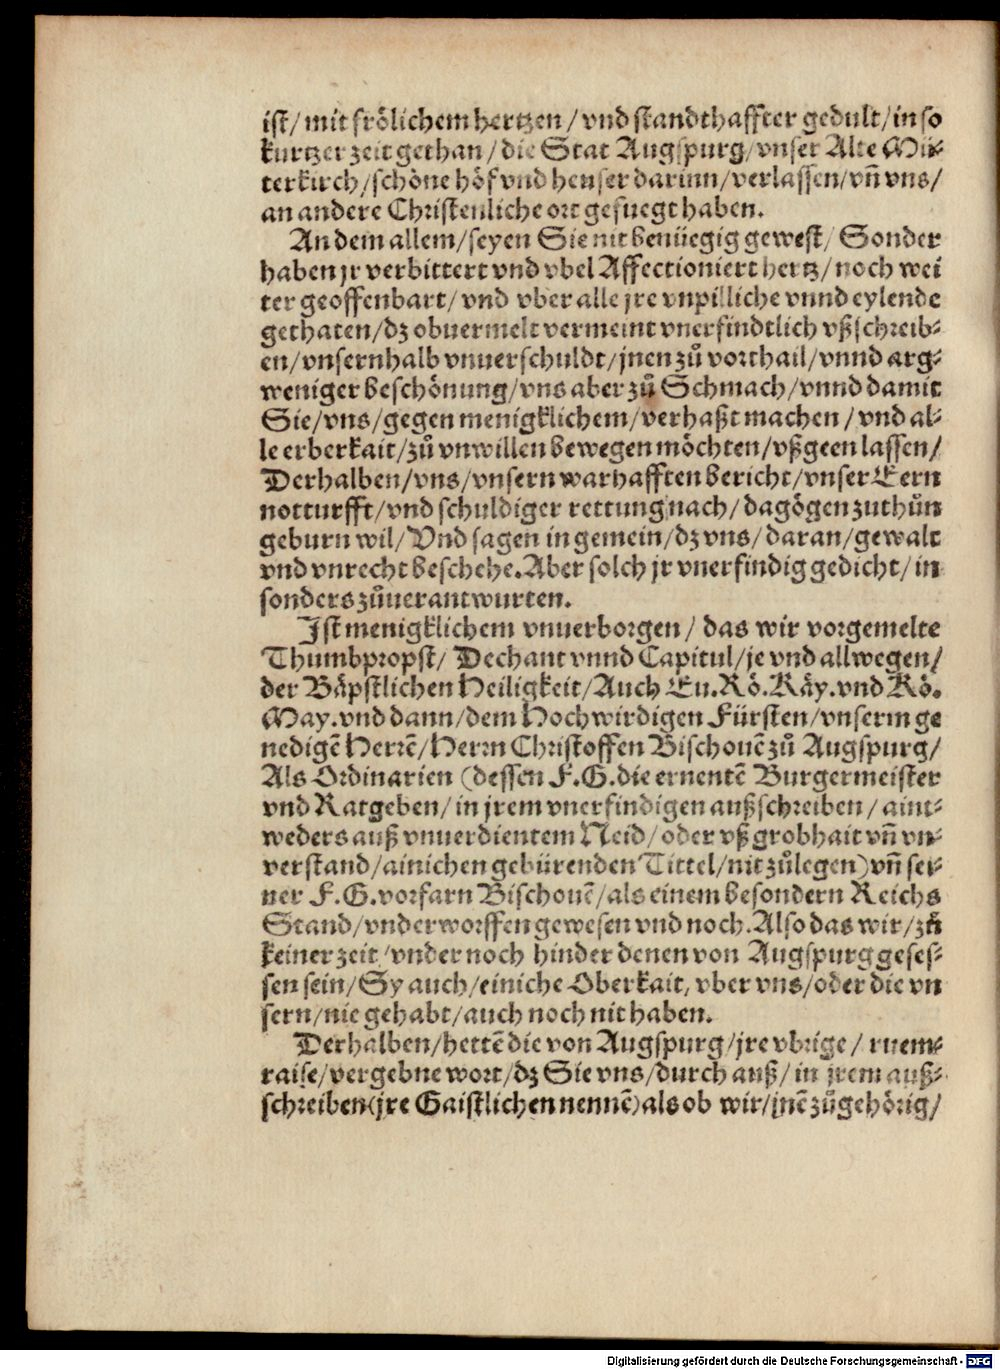 ist/ mit frölichem hertzen / vnd standthaffter gedult/ in so
kurtzer zeit gethan / die Stat Augspurg/ vnser Alte Mů-
terkirch/ schöne höf vnd heuser darinn/ verlassen/ vñ vns/
an andere Christenliche ort gefuegt haben.
An dem allem/ seyen Sie nit benüegig gewest/ Sonder
haben jr verbittert vnd vbel Affectioniert hertz/ noch wei
ter geoffenbart/ vnd vber alle jre vnpilliche vnnd eylende
gethaten/ dz obuermelt vermeint vnerfindtlich vßschreib-
en/ vnsernhalb vnuerschuldt/ jnen zů vorthail/ vnnd arg-
weniger beschönung/ vns aber zů Schmach/ vnnd damit
Sie/ vns/ gegen menigklichem/ verhaßt machen / vnd al-
le erberkait/ zů vnwillen bewegen möchten/ vßgeen lassen/
Derhalben/ vns/ vnsern warhafften bericht/ vnser Eern
notturfft/ vnd schuldiger rettung nach/ dagögen zuthůn
geburn wil/ Vnd sagen in gemein/ dz vns/ daran/ gewalt
vnd vnrecht beschehe. Aber solch jr vnerfindig gedicht/ in
sonders zůuerantwurten.
Ist menigklichem vnuerborgen / das wir vorgemelte
Thumbpropst/ Dechant vnnd Capitul/ je vnd allwegen/
der Bäpstlichen Heiligkeit/ Auch Eu. Rö. Käy. vnd Kö.
May. vnd dann/ dem Hochwirdigen Fürsten/ vnserm ge
nedigē Herrē/ Herrn Christoffen Bischouē zů Augspurg/
Als Ordinarien (dessen F. G. die ernentē Burgermeister
vnd Ratgeben/ in jrem vnerfindigen außschreiben / aint-
weders auß vnuerdientem Neid/ oder vß grobhait vñ vn-
verstand/ ainichen gebürenden Tittel/ nit zůlegen) vñ sei-
ner F. G. vorfarn Bischouē/ als einem besondern Reichs
Stand/ vnderworffen gewesen vnd noch. Also das wir/ zů
keiner zeit/ vnder noch hinder denen von Augspurg geses-
sen sein/ Sy auch/ einiche Oberkait, vber vns/ oder die vn
sern/ nie gehabt/ auch noch nit haben.
Derhalben/ hettē die von Augspurg/ jre vbrige / ruem-
raise/ vergebne wort/ dz Sie vns/ durch auß/ in jrem auß-
schreiben (jre Gaistlichen nennē) als ob wir/ jnē zůgehörig/
Digitalisierung gefördert durch die Deutsche Forschungsgemeinschaft - DFG